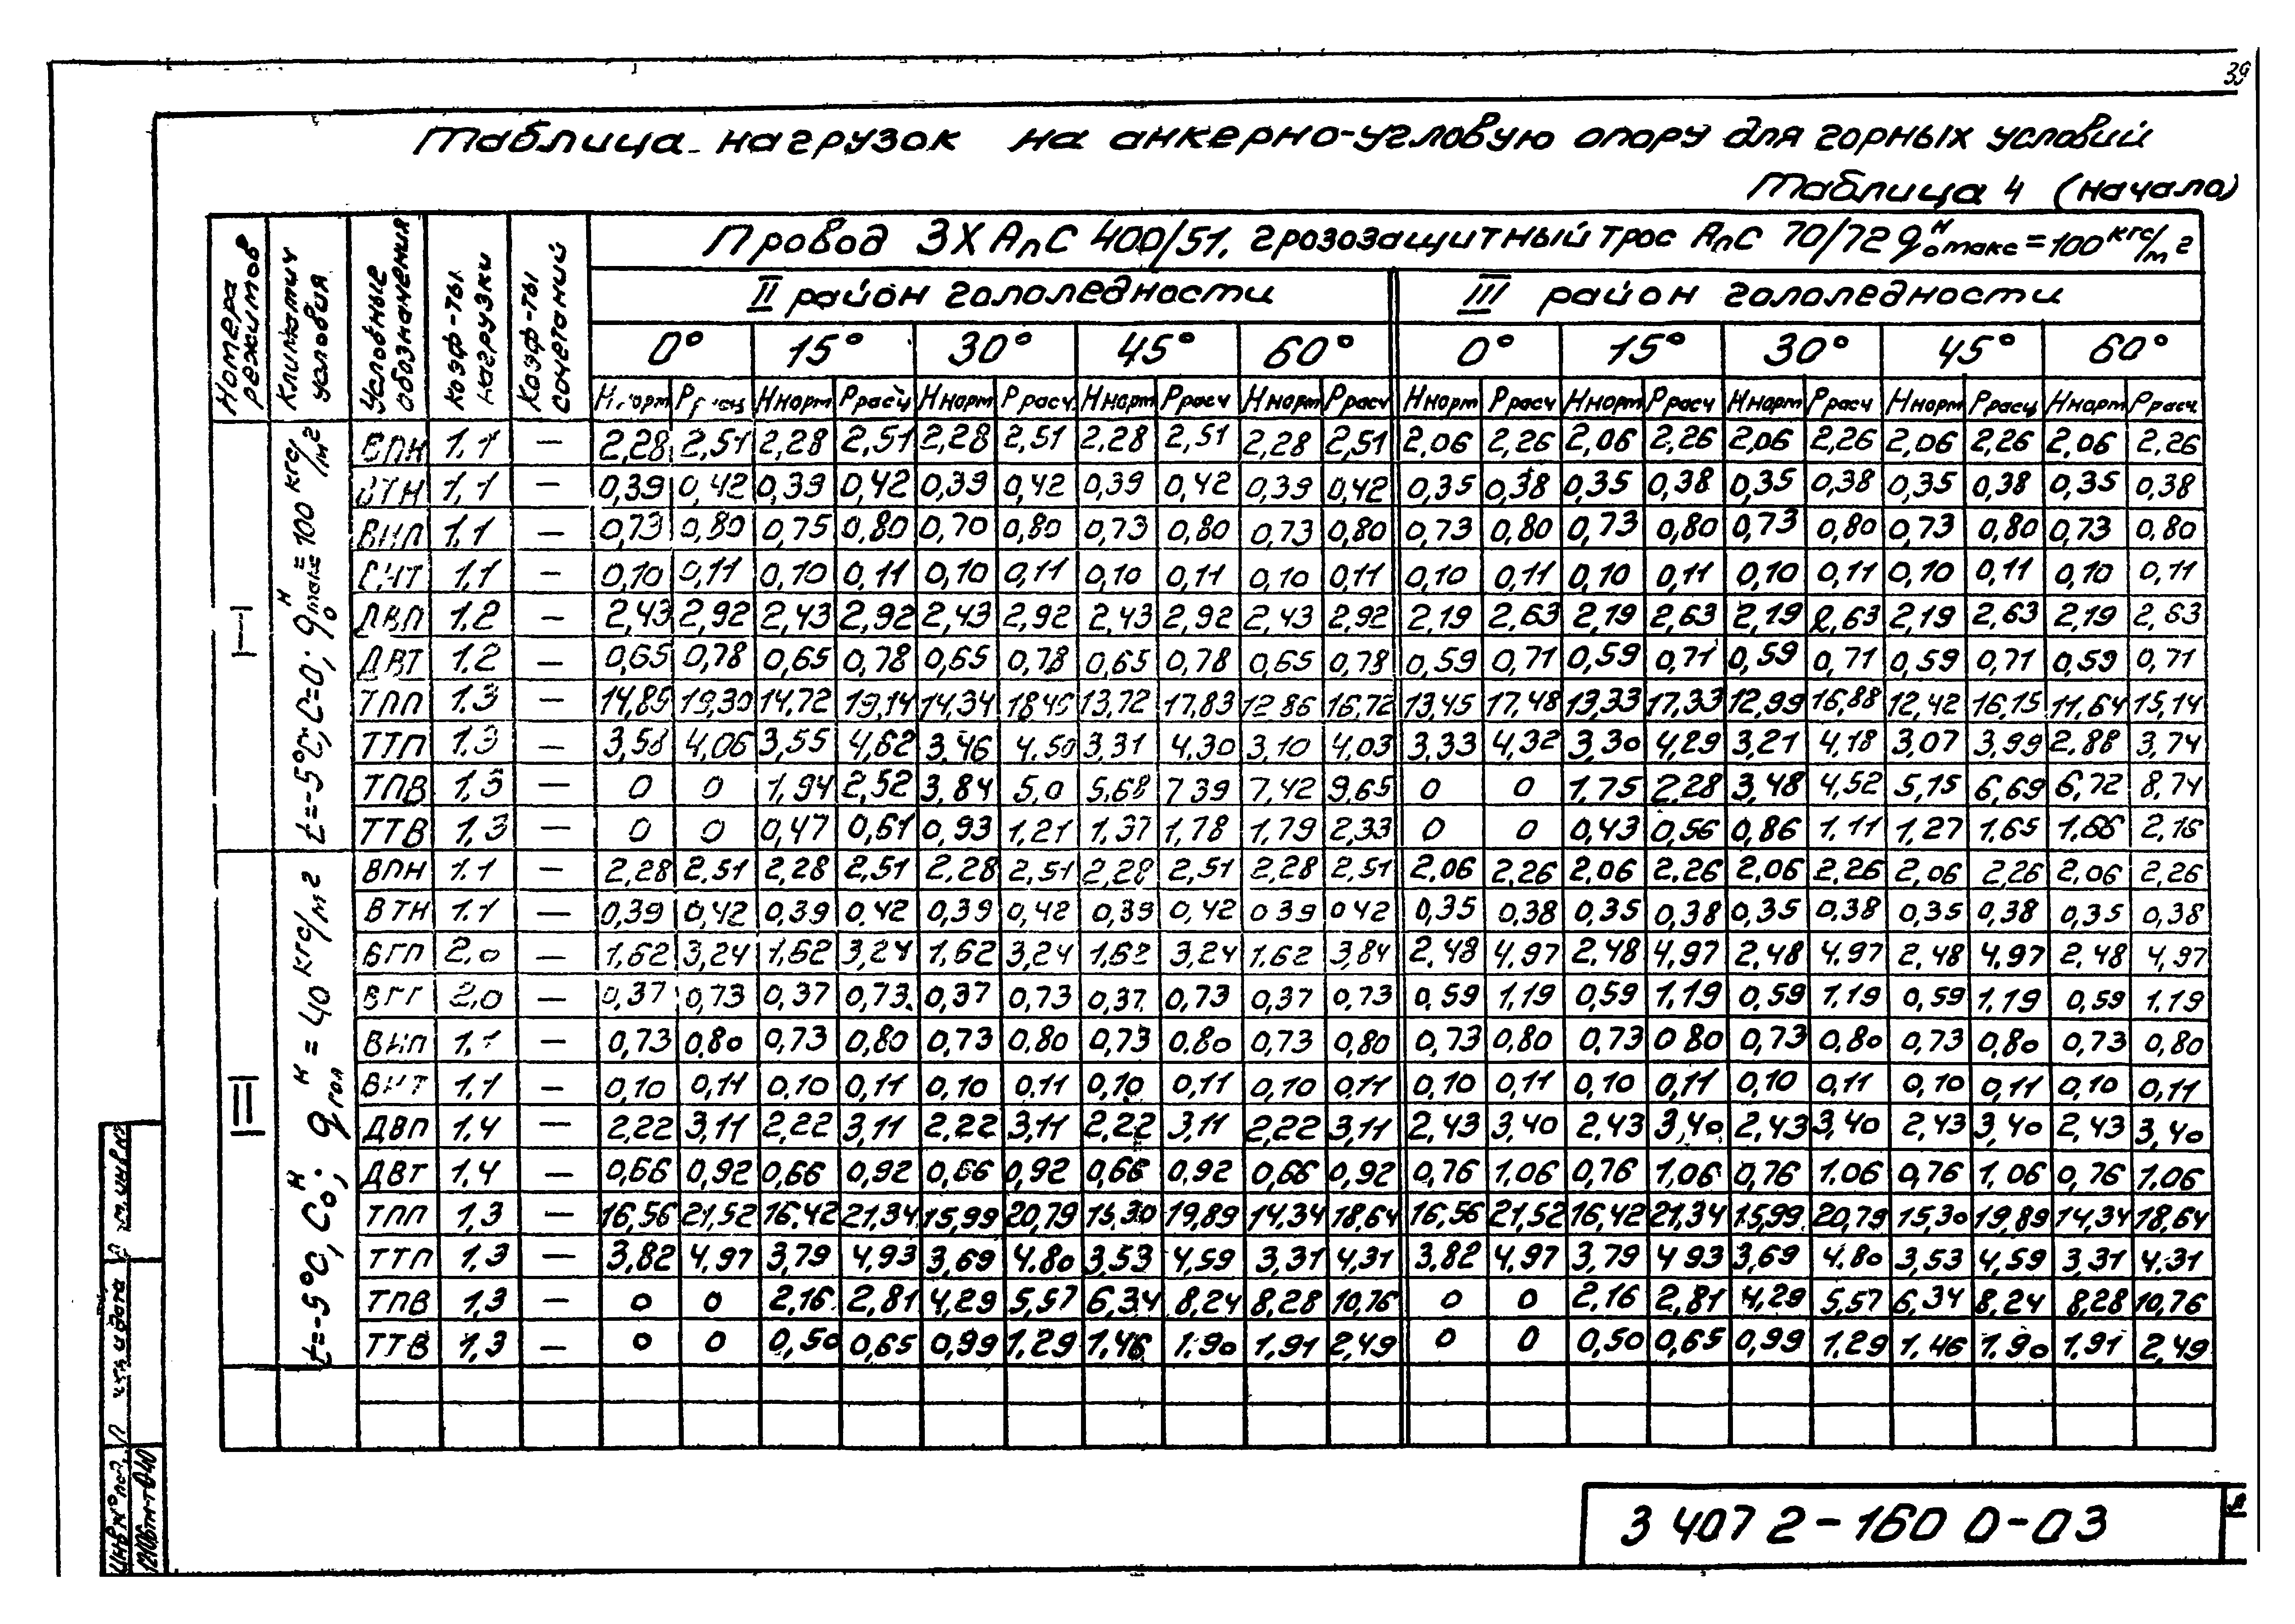 39
Таблица нагрузок на анкерно-угловую опору для горных условий
Таблица 4 (начало)
Номера режимов
Климатич условия
Условные обозначения
Коэф-ты нагрузки
Коэф-ты сочетаний
Провод 3хАпС 400/51, грозозащитный трос АпС 70/72 qᴴ₀макс = 100 кгс/м²
II район гололедности III район гололедности
0° 15° 30° 45° 60° 0° 15° 30° 45° 60°
Ннорм Ррасч Ннорм Ррасч Ннорм Ррасч Ннорм Ррасч Ннорм Ррасч Ннорм Ррасч Ннорм Ррасч Ннорм Ррасч Ннорм Ррасч Ннорм Ррасч
I
t=-5°C, C=0; qᴴ₀max = 100 кгс/м²
ВПН 1.1 — 2,28 2,51 2,28 2,51 2,28 2,51 2,28 2,51 2,28 2,51 2,06 2,26 2,06 2,26 2,06 2,26 2,06 2,26 2,06 2,26
ВТН 1,1 — 0,39 0,42 0,39 0,42 0,39 0,42 0,39 0,42 0,39 0,42 0,35 0,38 0,35 0,38 0,35 0,38 0,35 0,38 0,35 0,38
ВНП 1.1 — 0,73 0,80 0,75 0,80 0,70 0,80 0,73 0,80 0,73 0,80 0,73 0,80 0,73 0,80 0,73 0,80 0,73 0,80 0,73 0,80
1.1 — 0,10 0,11 0,10 0,11 0,10 0,11 0,10 0,11 0,10 0,11 0,10 0,11 0,10 0,11 0,10 0,11 0,10 0,11 0,10 0,11
ДВП 1.2 — 2,43 2,92 2,43 2,92 2,43 2,92 2,43 2,92 2,43 2,92 2,19 2,63 2,19 2,63 2,19 2,63 2,19 2,63 2,19 2,63
ДВТ 1.2 — 0,65 0,78 0,65 0,78 0,65 0,78 0,65 0,78 0,65 0,78 0,59 0,71 0,59 0,71 0,59 0,71 0,59 0,71 0,59 0,71
ТПП 1.3 — 14,85 19,30 14,72 19,14 14,34 18,45 13,72 17,83 12,86 16,72 13,45 17,48 13,33 17,33 12,99 16,88 12,42 16,15 11,64 15,14
ТТП 1.3 — 3,58 4,06 3,55 4,62 3,46 4.50 3,31 4,30 3,10 4,03 3,33 4,32 3,30 4,29 3,21 4,18 3,07 3,99 2,88 3,74
ТПВ 1,3 — 0 0 1,94 2,52 3,84 5,0 5,68 7 39 7,42 9,65 0 0 1,75 2,28 3,48 4,52 5,15 6,69 6,72 8,74
ТТВ 1,3 — 0 0 0,47 0,61 0,93 1,21 1,37 1,78 1,79 2,33 0 0 0,43 0,56 0,86 1.11 1,27 1,65 1.66 2,16
II
t=-5°C, C₀ᴴ; qᴴгол = 40 кгс/м²
ВПН 1.1 — 2,28 2.51 2,28 2,51 2,28 2,51 2,28 2,51 2,28 2,51 2,06 2,26 2,06 2.26 2,06 2,26 2,06 2,26 2,06 2,26
ВТН 1.1 — 0,39 0,42 0,39 0,42 0,39 0,42 0,39 0,42 0 39 0 42 0,35 0,38 0,35 0,38 0,35 0,38 0,35 0,38 0,35 0,38
ВГП 2.0 — 1,62 3,24 1,62 3,24 1,62 3,24 1,62 3,24 1.62 3,84 2,48 4,97 2,48 4,97 2,48 4,97 2,48 4,97 2,48 4,97
ВГТ 2,0 — 0,37 0,73 0,37 0,73 0,37 0,73 0,37 0,73 0,37 0,73 0,59 1,19 0,59 1,19 0,59 1,19 0,59 1,19 0,59 1.19
ВНП 1.1 — 0,73 0,80 0,73 0,80 0,73 0,80 0,73 0,80 0,73 0,80 0,73 0,80 0,73 0 80 0,73 0,80 0,73 0,80 0,73 0,80
ВНТ 1.1 — 0,10 0,11 0,10 0,11 0,10 0,11 0,10 0,11 0,10 0,11 0,10 0,11 0,10 0,11 0,10 0,11 0,10 0,11 0,10 0,11
ДВП 1.4 — 2,22 3,11 2,22 3,11 2,22 3,11 2,22 3,11 2,22 3,11 2,43 3,40 2,43 3,40 2,43 3,40 2,43 3,40 2,43 3,40
ДВТ 1,4 — 0,66 0,92 0,66 0,92 0,66 0,92 0,66 0,92 0,66 0,92 0,76 1.06 0,76 1,06 0,76 1.06 0,76 1,06 0,76 1.06
ТПП 1,3 — 16,56 21,52 16,42 21,34 15,99 20,79 15,30 19,89 14,34 18,64 16,56 21,52 16,42 21,34 15,99 20,79 15,30 19,89 14,34 18,64
ТТП 1,3 — 3,82 4,97 3,79 4,93 3,69 4.80 3,53 4,59 3,31 4,31 3,82 4,97 3,79 4 93 3,69 4.80 3,53 4,59 3,31 4.31
ТПВ 1,3 — 0 0 2,16 2,81 4,29 5,57 6,34 8,24 8,28 10,76 0 0 2,16 2,81 4,29 5,57 6,34 8,24 8,28 10,76
ТТВ 1,3 — 0 0 0,50 0,65 0,99 1.29 1,46 1.90 1,91 2,49 0 0 0,50 0,65 0,99 1.29 1.46 1.90 1,91 2,49
3 407 2-160 0-03